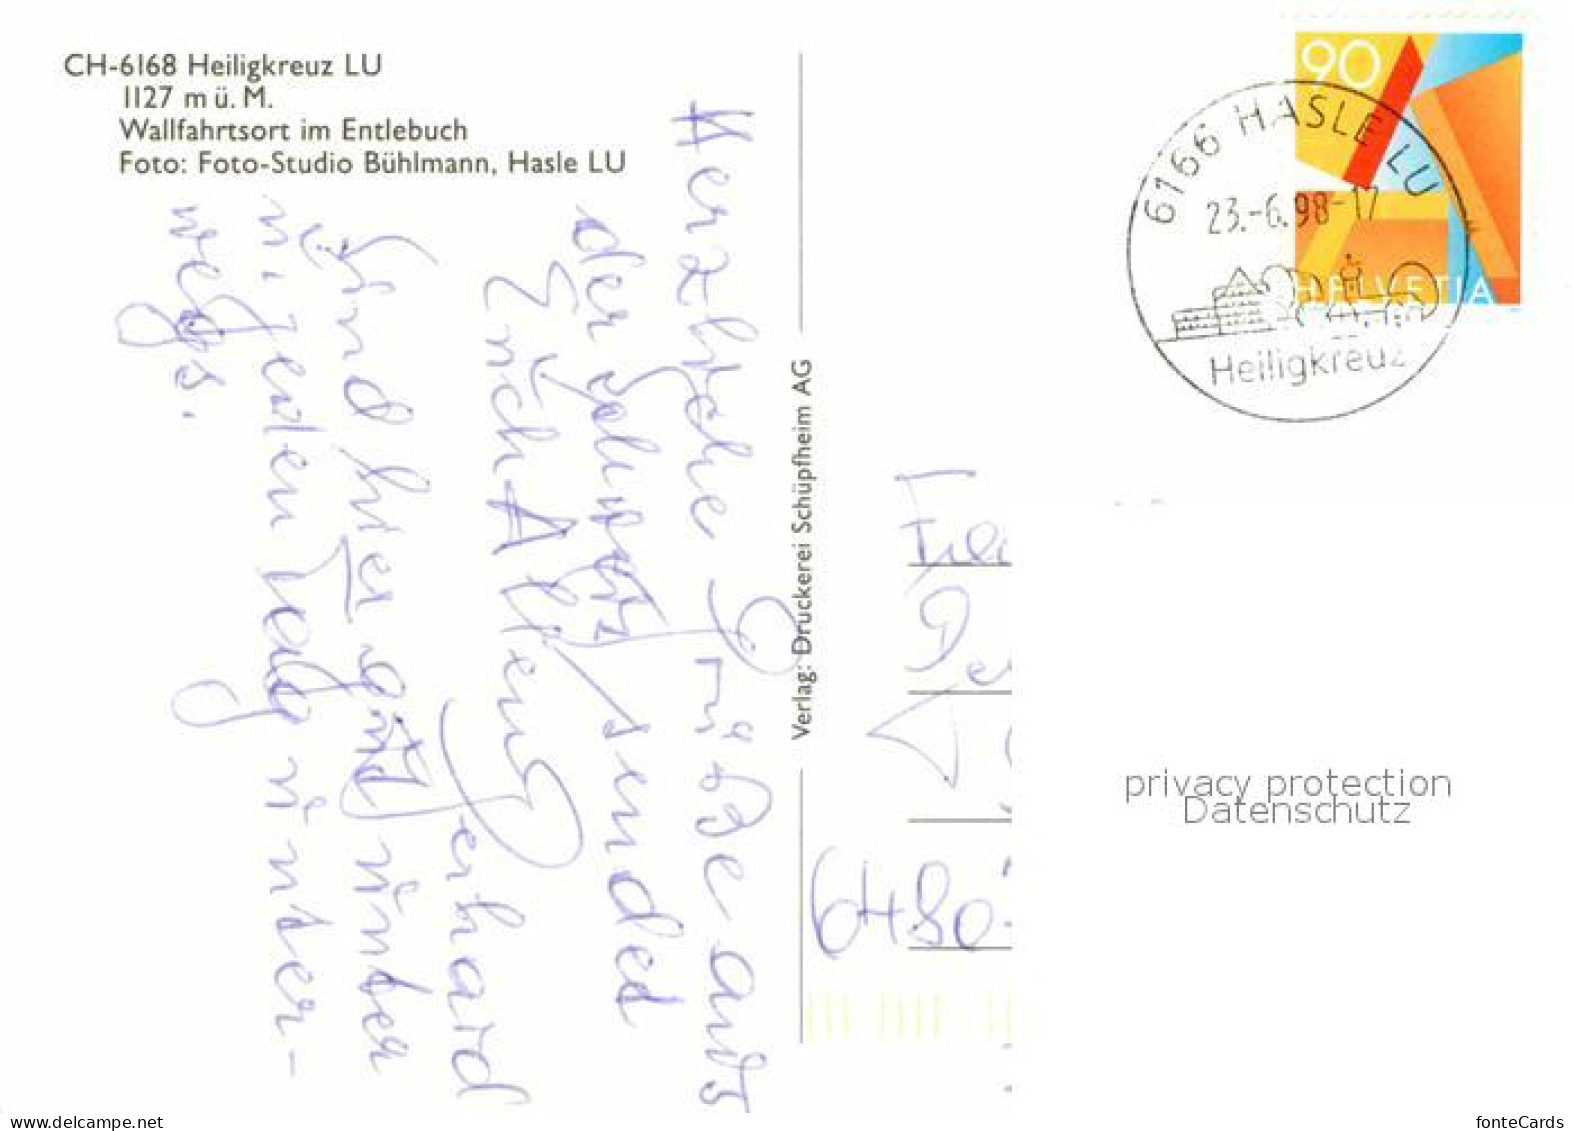 CH-6168 Heiligkreuz LU
1127 m ü. M.
Wallfahrtsort im Entlebuch
Foto: Foto-Studio Bühlmann, Hasle LU
Herzliche Grüße aus
der Schweiz sendet
Euch Allen
Gerhard
Sind hier gut runter
u. jeden Tag unter-
wegs.
Verlag: Druckerei Schüpfheim AG
90
HELVETIA
6166 HASLE LU
23.-6.98-17
Heiligkreuz
6480
privacy protection
Datenschutz
www.delcampe.net
fonteCards